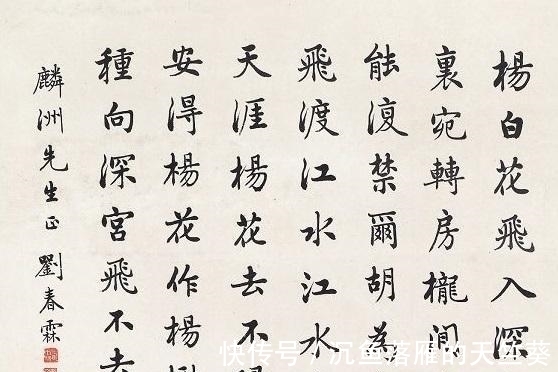 楊白花飛入深
裏宛轉房櫳間
能復禁爾胡為
飛渡江水江水
天涯楊花去不
安得楊花作楊
種向深宮飛不去
麟洲先生正 劉春霖
快传号：沉鱼落雁的天竺葵